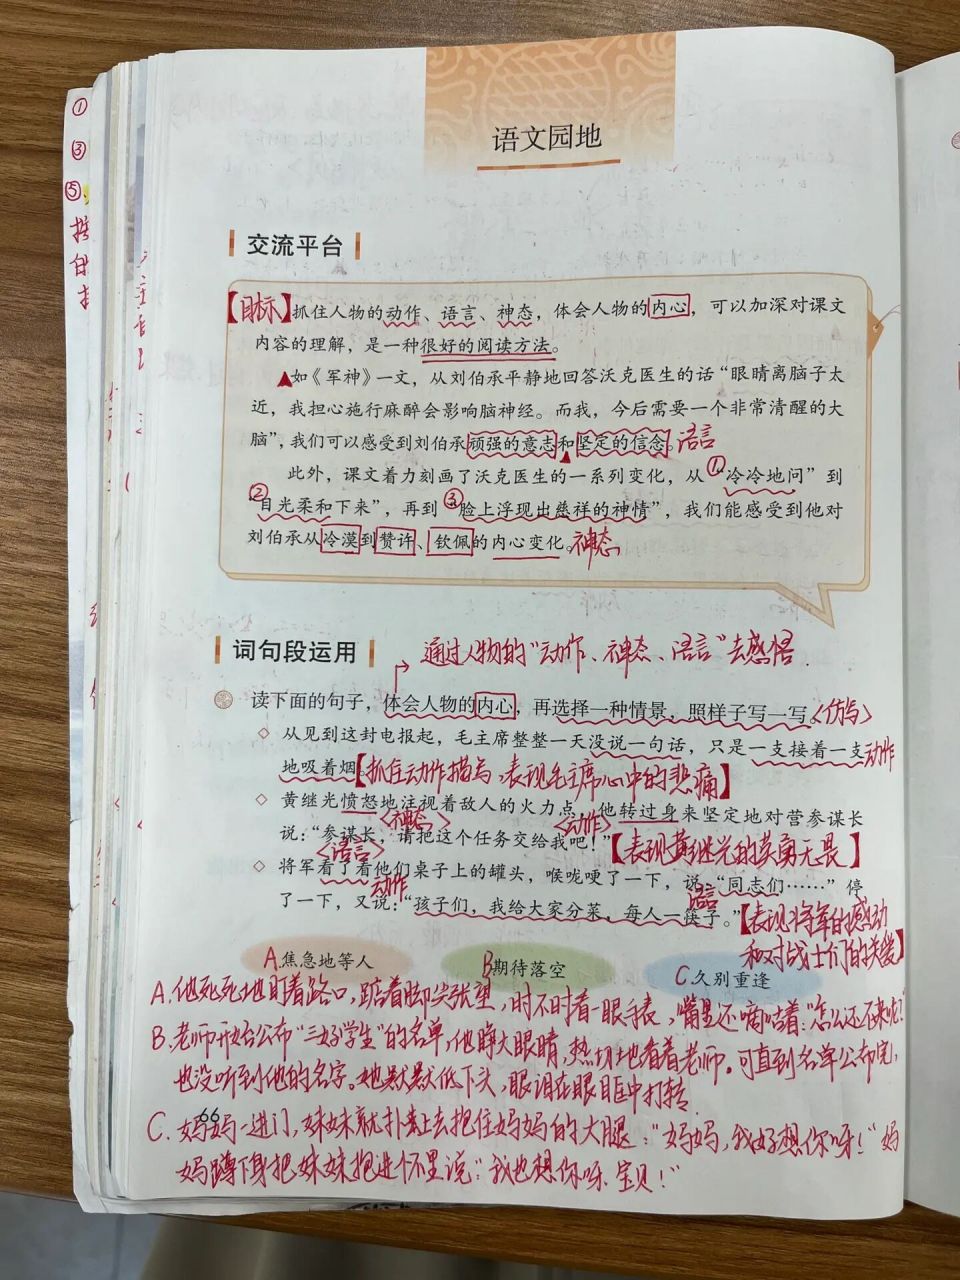 ①
③
⑤
语文园地
交流平台
【目标】抓住人物的动作、语言、神态，体会人物的内心，可以加深对课文
内容的理解，是一种很好的阅读方法。
▲如《军神》一文，从刘伯承平静地回答沃克医生的话“眼睛离脑子太
近，我担心施行麻醉会影响脑神经。而我，今后需要一个非常清醒的大
脑”，我们可以感受到刘伯承顽强的意志和坚定的信念。语言
此外，课文着力刻画了沃克医生的一系列变化，从①“冷冷地问”到
②“目光柔和下来”，再到③“脸上浮现出慈祥的神情”，我们能感受到他对
刘伯承从冷漠到赞许、钦佩的内心变化。神态
词句段运用
通过人物的“动作、神态、语言”去感悟.
读下面的句子，体会人物的内心，再选择一种情景，照样子写一写。<仿写>
◇ 从见到这封电报起，毛主席整整一天没说一句话，只是一支接着一支动作
地吸着烟。【抓住动作描写，表现毛主席心中的悲痛】
◇ 黄继光愤怒地注视着敌人的火力点，他转过身来坚定地对营参谋长
<神态> <动作>
说：“参谋长，请把这个任务交给我吧！”【表现黄继光的英勇无畏】
<语言>
◇ 将军看了看他们桌子上的罐头，喉咙哽了一下，说：“同志们……”停
动作 语言
了一下，又说：“孩子们，我给大家分菜，每人一筷子。”【表现将军的感动
和对战士们的关爱】
A.焦急地等人 B期待落空 C.久别重逢
A.他死死地盯着路口，踮着脚尖张望，时不时看一眼手表，嘴里还嘀咕着：“怎么还不来呢？
B.老师开始公布“三好学生”的名单，他睁大眼睛，热切地看着老师。可直到名单公布完，
也没听到他的名字。她默默低下头，眼泪在眼眶中打转.
66
C. 妈妈一进门，妹妹就扑上去抱住妈妈的大腿：“妈妈，我好想你呀！”妈
妈蹲下身把妹妹抱进怀里说：“我也想你呀.宝贝！”